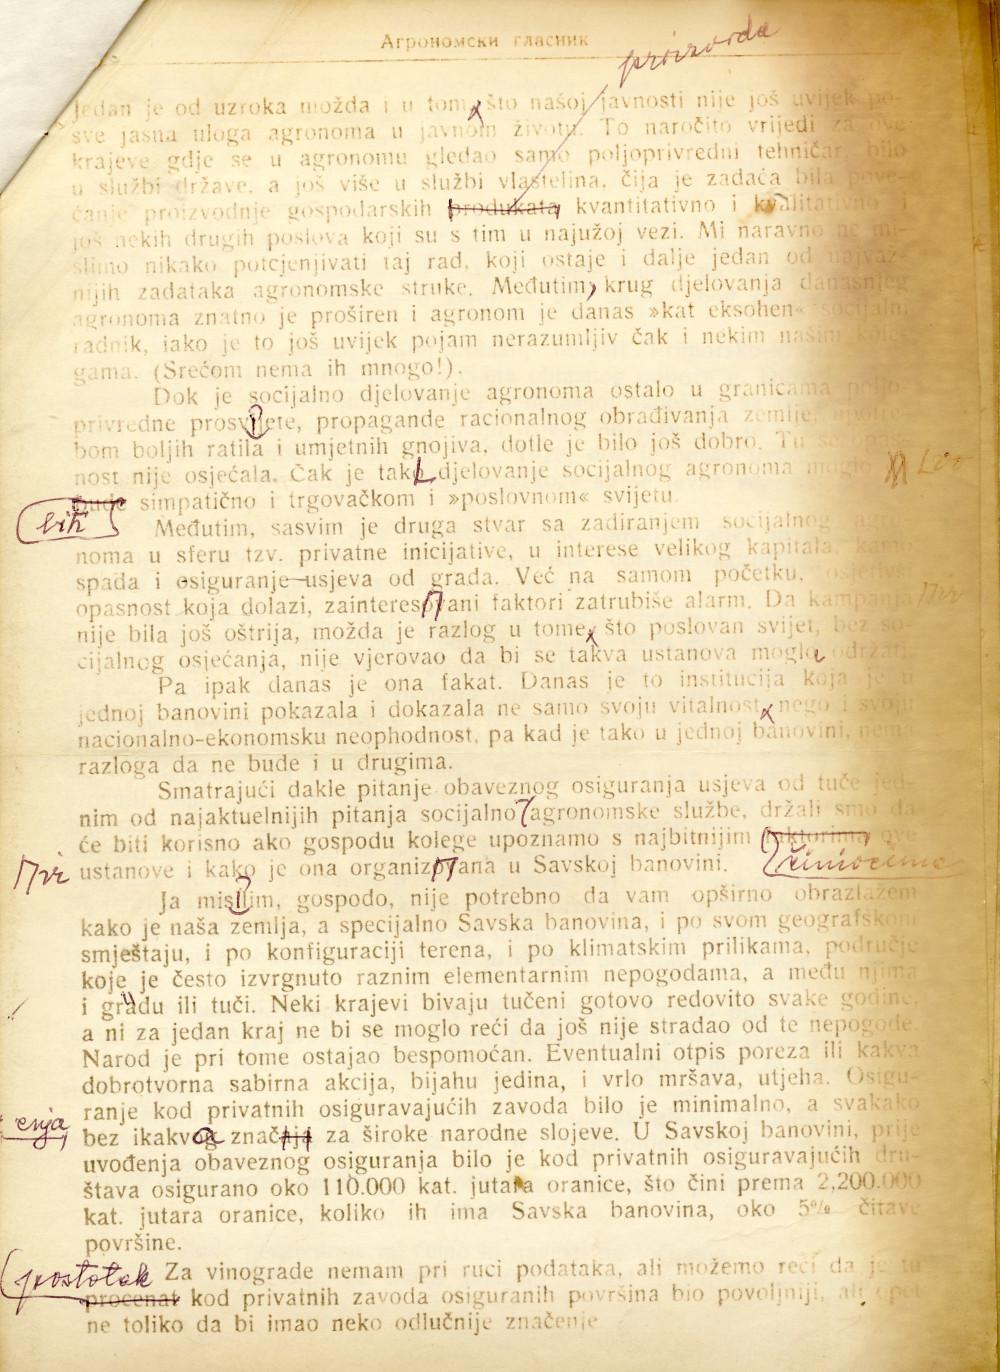 Агрономски гласник
proizvoda
Jedan je od uzroka možda i u tom, što našoj javnosti nije još uvijek po-
sve jasna uloga agronoma u javnom životu. To naročito vrijedi za ove
krajeve gdje se u agronomu gledao samo poljoprivredni tehničar, bilo
u službi države, a još više u službi vlastelina, čija je zadaća bila pove-
ćanje proizvodnje gospodarskih produkata kvantitativno i kvalitativno i
još nekih drugih poslova koji su s tim u najužoj vezi. Mi naravno ne mi-
slimo nikako potcjenjivati taj rad, koji ostaje i dalje jedan od najvaž-
nijih zadataka agronomske struke. Međutim, krug djelovanja današnjeg
agronoma znatno je proširen i agronom je danas »kat eksohen« socijalni
radnik, iako je to još uvijek pojam nerazumljiv čak i nekim našim kole-
gama. (Srećom nema ih mnogo!).
Dok je socijalno djelovanje agronoma ostalo u granicama poljo-
privredne prosvjete, propagande racionalnog obrađivanja zemlje,
bom boljih ratila i umjetnih gnojiva, dotle je bilo još dobro. Tu
nost nije osjećala. Čak je tako djelovanje socijalnog agronoma
bude simpatično i trgovačkom i »poslovnom« svijetu.
biti
Međutim, sasvim je druga stvar sa zadiranjem socijalnog agro-
noma u sferu tzv. privatne inicijative, u interese velikog kapitala, kamo
spada i osiguranje usjeva od grada. Već na samom početku, osjetivši
opasnost koja dolazi, zainteresovani faktori zatrubiše alarm. Da kampanja
nije bila još oštrija, možda je razlog u tome, što poslovan svijet, bez so-
cijalnog osjećanja, nije vjerovao da bi se takva ustanova mogla održati.
Pa ipak danas je ona fakat. Danas je to institucija koja je u
jednoj banovini pokazala i dokazala ne samo svoju vitalnost, nego i svoju
nacionalno-ekonomsku neophodnost, pa kad je tako u jednoj banovini, nema
razloga da ne bude i u drugima.
Smatrajući dakle pitanje obaveznog osiguranja usjeva od tuče jed-
nim od najaktuelnijih pitanja socijalno agronomske službe, držali smo da
će biti korisno ako gospodu kolege upoznamo s najbitnijim faktorima ove
činiocima
ustanove i kako je ona organizovana u Savskoj banovini.
Ja mislim, gospodo, nije potrebno da vam opširno obrazlažem
kako je naša zemlja, a specijalno Savska banovina, i po svom geografskom
smještaju, i po konfiguraciji terena, i po klimatskim prilikama, područje
koje je često izvrgnuto raznim elementarnim nepogodama, a među njima
i gradu ili tuči. Neki krajevi bivaju tučeni gotovo redovito svake godine,
a ni za jedan kraj ne bi se moglo reći da još nije stradao od te nepogode.
Narod je pri tome ostajao bespomoćan. Eventualni otpis poreza ili kakva
dobrotvorna sabirna akcija, bijahu jedina, i vrlo mršava, utjeha. Osigu-
ranje kod privatnih osiguravajućih zavoda bilo je minimalno, a svakako
enja
bez ikakvog značaja za široke narodne slojeve. U Savskoj banovini, prije
uvođenja obaveznog osiguranja bilo je kod privatnih osiguravajućih dru-
štava osigurano oko 110.000 kat. jutara oranice, što čini prema 2,200.000
kat. jutara oranice, koliko ih ima Savska banovina, oko 5% čitave
površine.
postotak
Za vinograde nemam pri ruci podataka, ali možemo reći da je tu
procenat kod privatnih zavoda osiguranih površina bio povoljniji, ali opet
ne toliko da bi imao neko odlučnije značenje